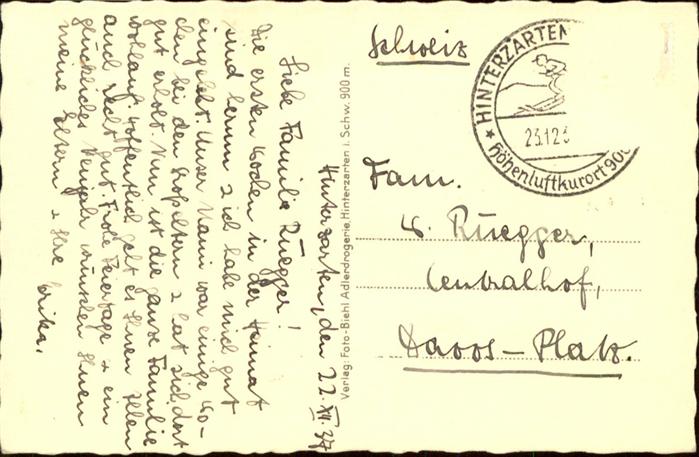 Hinterzarten, den 22. XII. 37
Liebe Familie Rüegger!
Die ersten Wochen in der Heimat
sind herum & ich habe mich gut
eingelebt. Unser Mami war einige Wo-
chen bei den Großeltern & hat sich dort
gut erholt. Nun ist die ganze Familie
wohlauf. Hoffentlich geht es Ihnen Allen
auch recht gut. Frohe Feiertage & ein
glückliches Neujahr wünschen Ihnen
meine Eltern & Ihre Erika.
Verlag: Foto-Biehl Adlerdrogerie, Hinterzarten i. Schw. 900 m.
Schweiz
HINTERZARTEN
23.12.3
* Höhenluftkurort 900
Fam.
W. Rüegger,
Centralhof,
Davos-Platz.